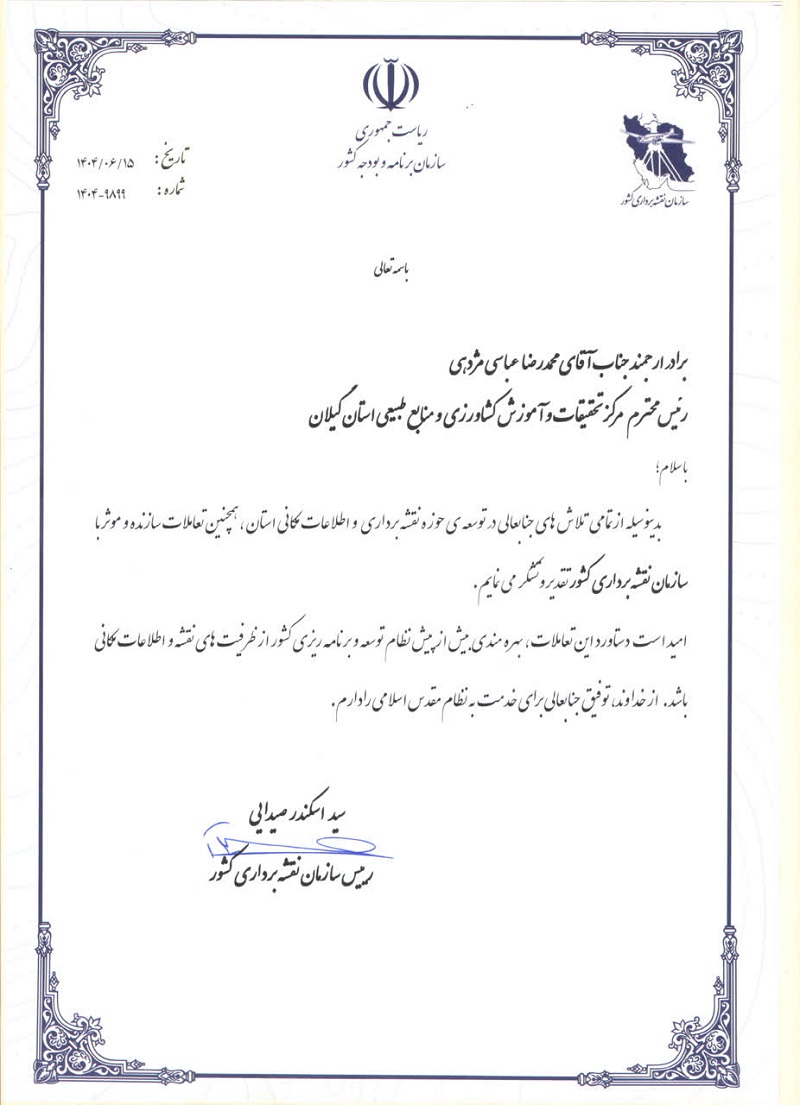 ریاست جمهوری
سازمان برنامه و بودجه کشور
سازمان نقشه برداری کشور
تاریخ: ۱۴۰۴/۰۶/۱۵
شماره: ۱۴۰۴-۹۸۹۹
باسمه تعالی
برادر ارجمند جناب آقای محمدرضا عباسی مژدهی
رئیس محترم مرکز تحقیقات و آموزش کشاورزی و منابع طبیعی استان گیلان
باسلام؛
بدینوسیله از تمامی تلاش های جنابعالی در توسعه ی حوزه نقشه برداری و اطلاعات مکانی استان، همچنین تعاملات سازنده و موثر با
سازمان نقشه برداری کشور تقدیر و تشکر می نمایم.
امید است دستاورد این تعاملات، بهره مندی بیش از پیش نظام توسعه و برنامه ریزی کشور از ظرفیت های نقشه و اطلاعات مکانی
باشد. از خداوند، توفیق جنابعالی برای خدمت به نظام مقدس اسلامی را دارم.
سید اسکندر صیدایی
رییس سازمان نقشه برداری کشور